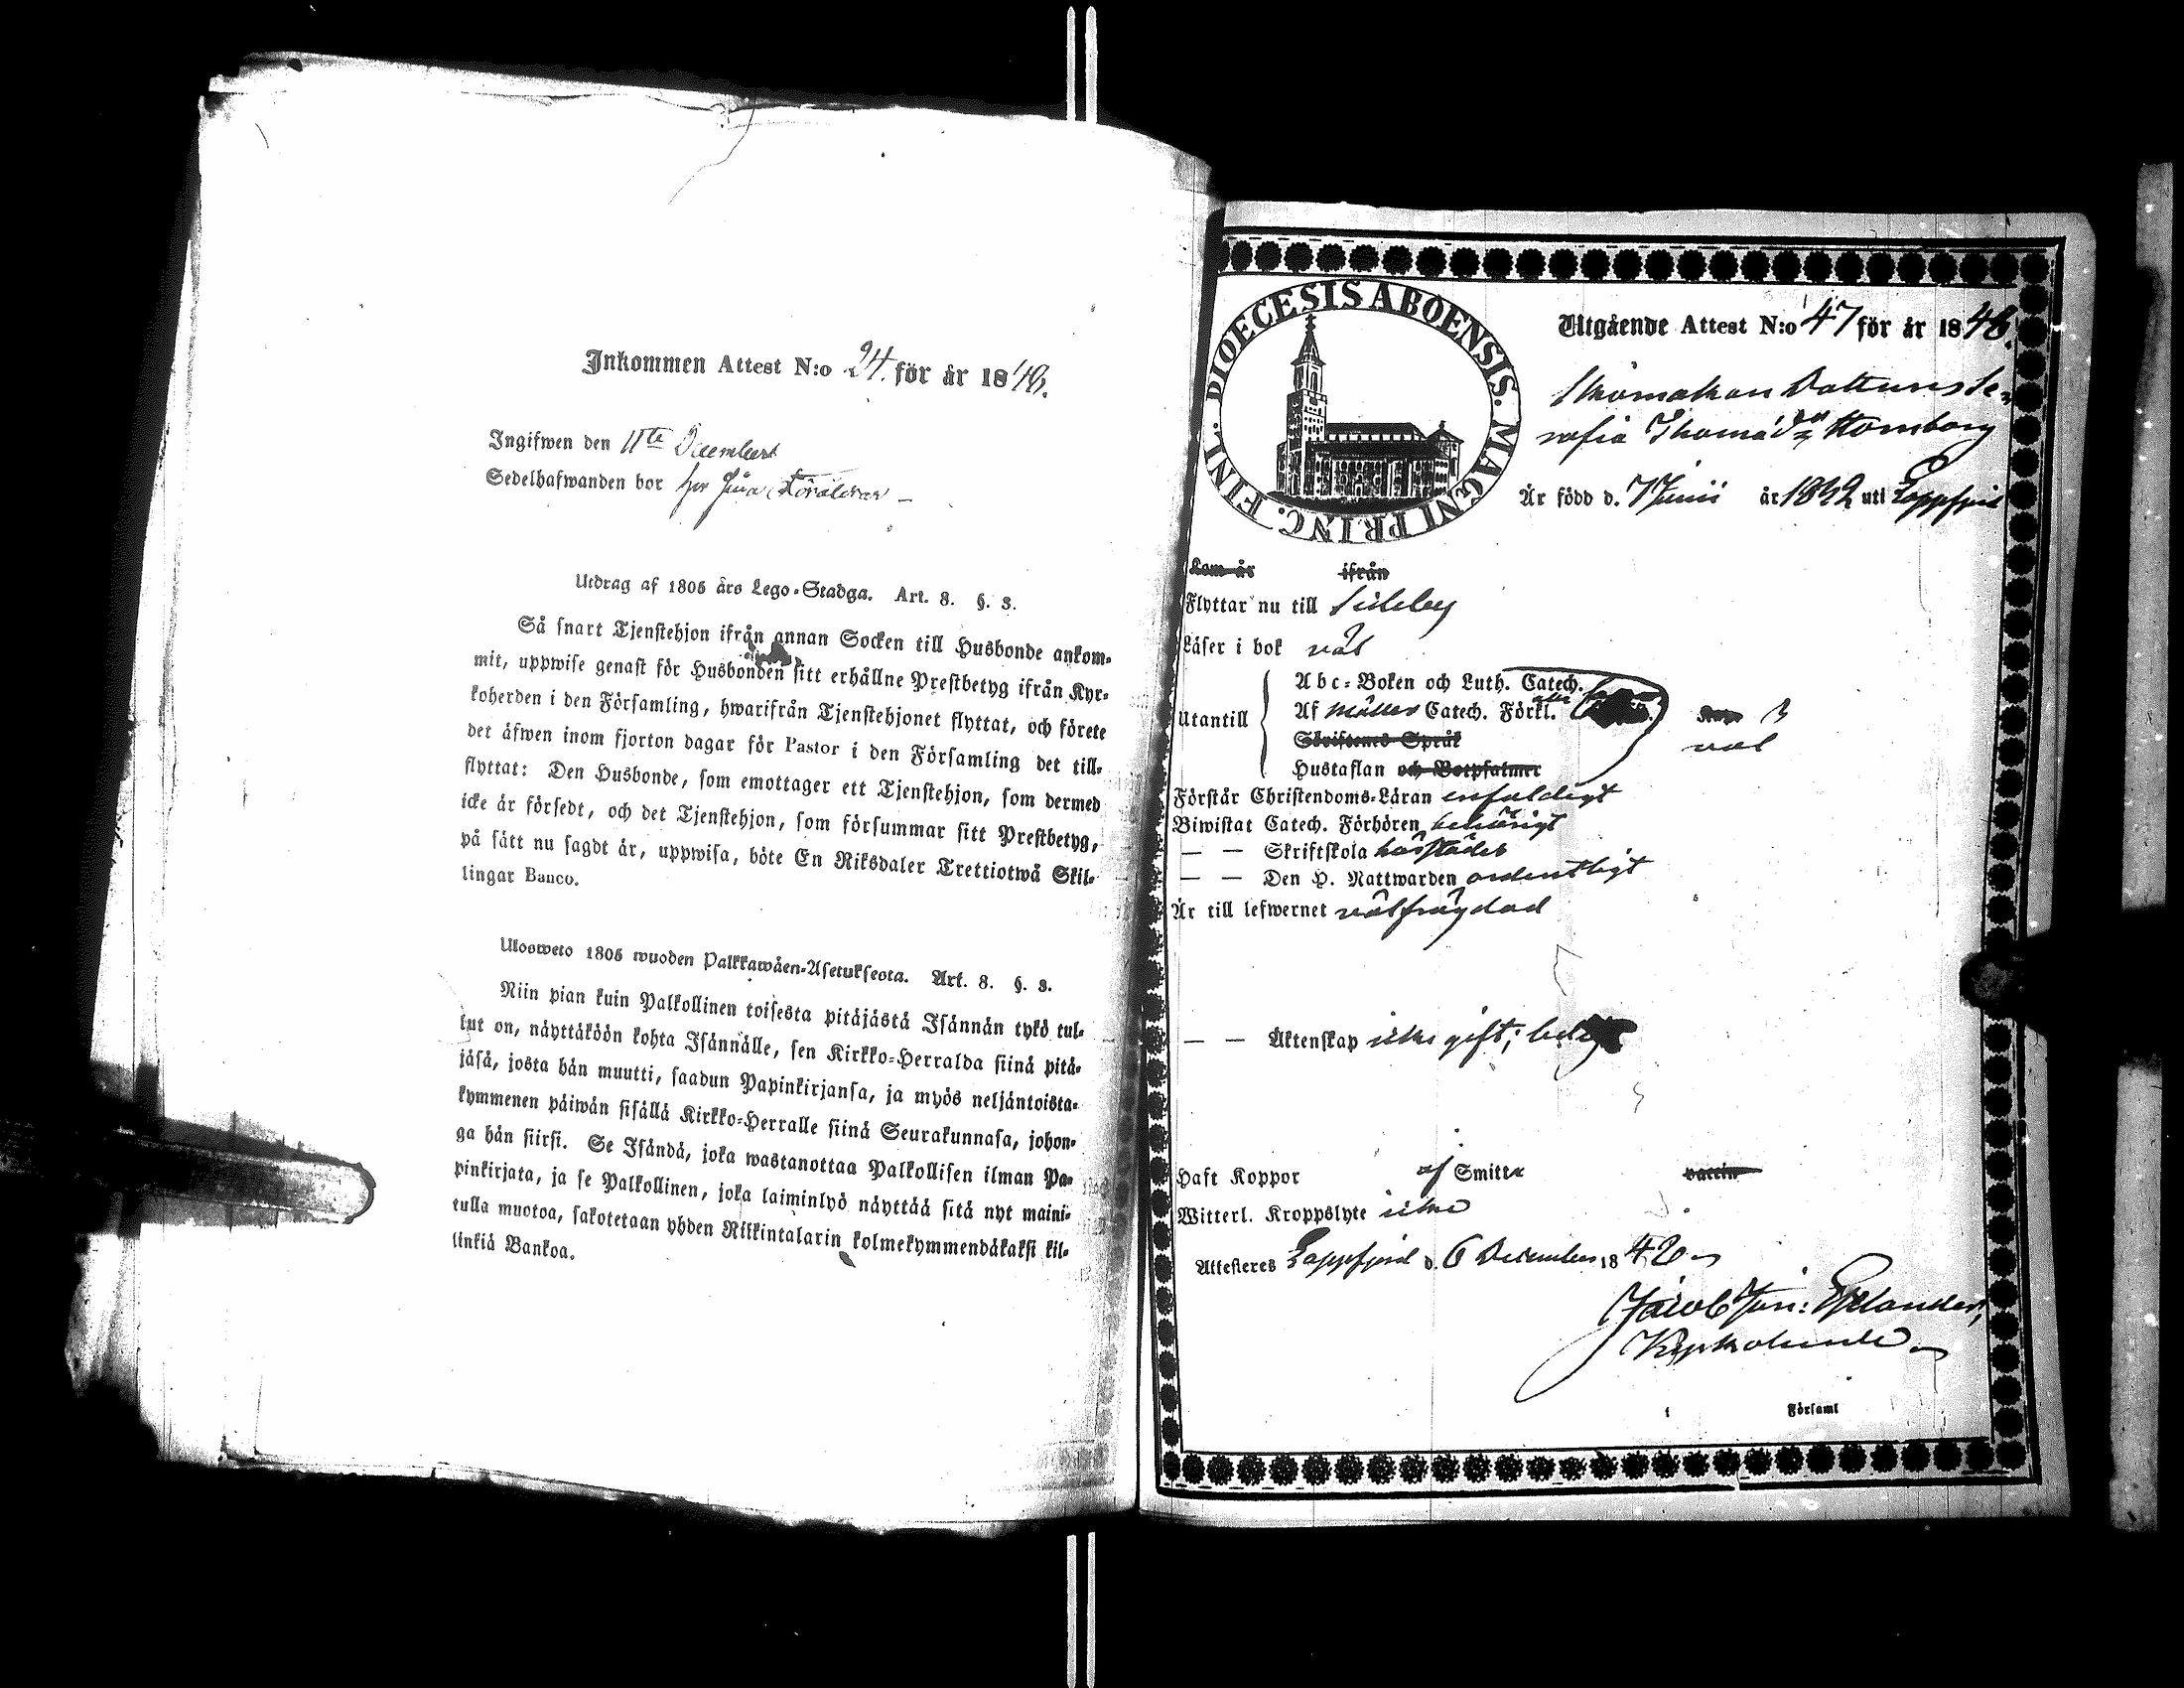 Inkommen Attest N:o 24. för år 1848.
Ingifwen den 11te December
Sedelhafwanden bor hos sina Föräldrar –
Utdrag af 1805 års Lego-Stadga. Art. 8. §. 3.
Så snart Tjenstehjon ifrån annan Socken till Husbonde ankom-
mit, uppwise genast för Husbonden sitt erhållne Prestbetyg ifrån Kyr-
koherden i den Församling, hwarifrån Tjenstehjonet flyttat, och förete
det äfwen inom fjorton dagar för Pastor i den Församling det till-
flyttat: Den Husbonde, som emottager ett Tjenstehjon, som dermed
icke är försedt, och det Tjenstehjon, som försummar sitt Prestbetyg,
på sätt nu sagdt är, uppwisa, böte En Riksdaler Trettiotwå Skil-
lingar Banco.
Ulosweto 1805 wuoden Palkkawäen-Asetuksesta. Art. 8. §. 3.
Niin pian kuin Palkollinen toisesta pitäjästä Isännän tykö tul-
lut on, näyttäköön kohta Isännälle, sen Kirkko-Herralda siinä pitä-
jäsä, josta hän muutti, saadun Papinkirjansa, ja myös neljäntoista-
kymmenen päiwän sisällä Kirkko-Herralle siinä Seurakunnasa, johon-
ga hän siirsi. Se Isändä, joka wastanottaa Palkollisen ilman Pa-
pinkirjata, ja se Palkollinen, joka laiminlyö näyttää sitä nyt maini-
tulla muotoa, sakotetaan yhden Riikintalarin kolmekymmendäkaksi kil-
linkiä Bankoa.
DIOECESIS ABOENSIS. MAGNI PRINC. FINL.
Utgående Attest N:o 47 för år 1848.
Skomakare Dottren Se-
rafia Thomasdr Homborg
Är född d. 7 Junii år 1832 uti Lappfjerd
Kom år ifrån
Flyttar nu till Sideby
Läser i bok väl
Utantill
Abc-Boken och Luth. Catech.
Af Möllers Catech. Förkl.
Skriftenes Språk
väl
Hustaflan och Botpsalmer
Förstår Christendoms-Läran enfaldigt
Biwistat Catech. Förhören behörigt
— — Skriftskola härstädes
— — Den H. Nattwarden ordentligt
Är till lefwernet välfrägdad
— — Äktenskap icke gift;
Haft Koppor af Smitta vaccin
Witterl. Kroppslyte icke
Attesteres Lappfjerd d. 6 December 1848
Jacob Jon: Estlander,
Kyrkoherde
i Församl